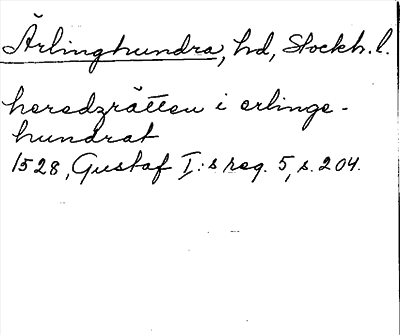 Ärlinghundra, hd, Stockh. l.
heredzrätten i erlinge-
hundrat
1528, Gustaf I:s reg. 5, s. 204.